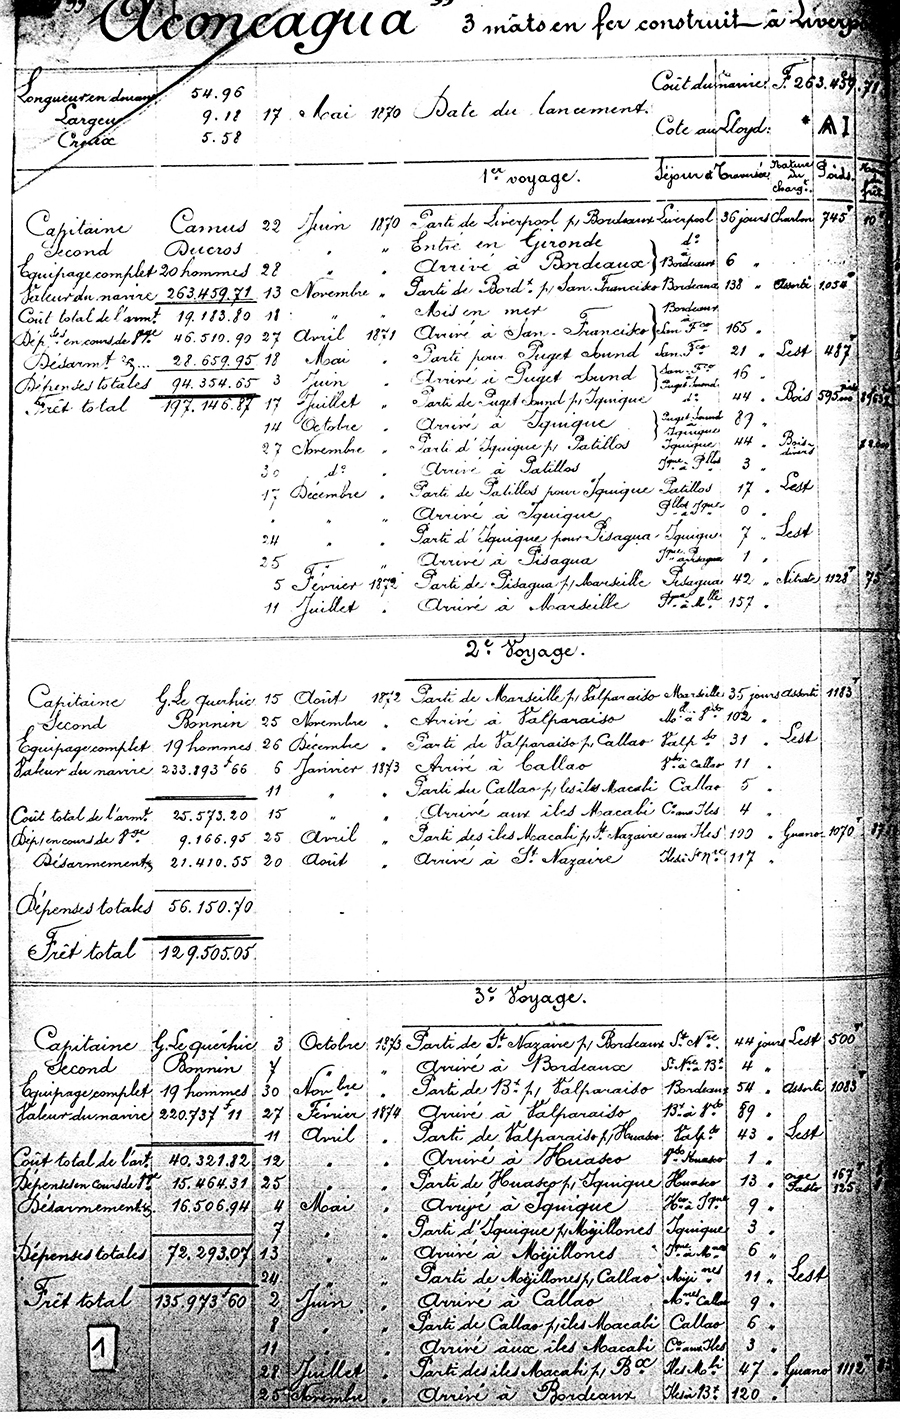 "Aconcagua" 3 mâts en fer construit à Liverpo
Longueur en douane 54.96 Coût du navire: F. 263.459.71
Largeur 9.18 17 Mai 1870 Date du lancement.
Creux 5.58 Cote au Lloyd: * A I
1er voyage. Séjour et Traversée Nature du charg.t Poids.
Capitaine Camus 22 Juin 1870 Parti de Liverpool p/ Bordeaux Liverpool 36 jours Charbon 745T
Second Ducros " " Entré en Gironde do
Equipage complet 20 hommes 28 " " Arrivé à Bordeaux Bordeaux 6 "
Valeur du navire 263.459.71 13 Novembre " Parti de Bord.x p/ San-Francisco Bordeaux 138 " Assorti 1.054T
Coût total de l'armt 19.183.80 18 " " Mis en mer Bordeaux
Dép.ses en cours de Vge 46.510.90 27 Avril 1871 Arrivé à San-Francisco à San Fco 165 "
Désarmt &... 28.659.95 18 Mai " Parti pour Puget Sound San. Fco 21 " Lest 487T
Dépenses totales 94.354.65 3 Juin " Arrivé à Puget Sound San-Fco à Puget Sound 16 "
Frêt total 197.146.87 17 Juillet " Parti de Puget Sound p/ Iquique do 44 " Bois 595
14 Octobre " Arrivé à Iquique Puget Sound à Iquique 89 "
27 Novembre " Parti d'Iquique p/ Patillos Iquique 44 " Bois divers
30 do " Arrivé à Patillos Ique à Pllos 3 "
17 Décembre " Parti de Patillos pour Iquique Patillos 17 " Lest
" " " Arrivé à Iquique Pllos à Ique 0 "
24 " " Parti d'Iquique pour Pisagua Iquique 7 " Lest
25 " " Arrivé à Pisagua Ique à Pisagua 1 "
5 Février 1872 Parti de Pisagua p/ Marseille Pisagua 42 " Nitrate 1128T 75
11 Juillet " Arrivé à Marseille à Mlle 157 "
2e Voyage.
Capitaine G. Le querhic 15 Août 1872 Parti de Marseille p/ Valparaiso Marseille 35 jours Assorti 1183T
Second Bonnin 25 Novembre " Arrivé à Valparaiso 102 "
Equipage complet 19 hommes 26 Décembre " Parti de Valparaiso p/ Callao Valpso 31 " Lest
Valeur du navire 233.893f66 6 Janvier 1873 Arrivé à Callao Vso à Callao 11 "
11 " " Parti du Callao p/ les iles Macabi Callao 5 "
Coût total de l'armt 25.573.20 15 " " Arrivé aux iles Macabi Co aux Iles 4 "
Dép/ en cours de Vge 9.166.95 25 Avril " Parti des iles Macabi p/ St Nazaire aux Iles 100 " Guano 1070T
Désarment & 21.410.55 20 Août " Arrivé à St Nazaire Iles à St Nre 117 "
Dépenses totales 56.150.70
Frêt total 129.505.05
3e Voyage.
Capitaine G. Le quérhic 3 Octobre 1873 Parti de St Nazaire p/ Bordeaux St Nre 44 jours Lest 500T
Second Bonnin 7 " " Arrivé à Bordeaux St Nre à Bx 4 "
Equipage complet 19 hommes 30 Novbre " Parti de Bx p/ Valparaiso Bordeaux 54 " Assorti 1083T
Valeur du navire 220.737f11 27 Février 1874 Arrivé à Valparaiso Bx à Vso 89 "
11 Avril " Parti de Valparaiso p/ Huasco Valpso 43 " Lest
Coût total de l'art 40.321.82 12 " " Arrivé à Huasco Vso Huasco 1 "
Dépenses en cours de Vge 15.464.31 25 " " Parti de Huasco p/ Iquique Huasco 13 " orge 167T Pasto 125
Désarment & 16.506.94 4 Mai " Arrivé à Iquique Hco à Ique 9 "
7 " " Parti d'Iquique p/ Mejillones Iquique 3 "
Dépenses totales 72.293.07 13 " " Arrivé à Mejillones Ique à Mnes 6 "
24 " " Parti de Mejillones p/ Callao Mejines 11 " Lest
Frêt total 135.973f60 2 Juin " Arrivé à Callao Mnes Callao 9 "
8 " " Parti de Callao p/ iles Macabi Callao 6 "
11 " " Arrivé aux iles Macabi Co aux Iles 3 "
28 Juillet " Parti des iles Macabi p/ Bx Iles Mbi 47 " Guano 1112T
25 Novembre " Arrivé à Bordeaux Iles à Bx 120 "
1